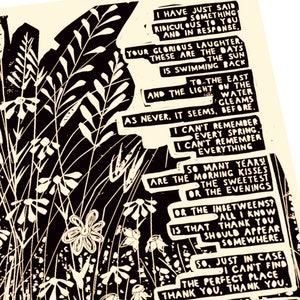 I HAVE JUST SAID
SOMETHING
RIDICULOUS TO YOU
AND IN RESPONSE,
YOUR GLORIOUS LAUGHTER.
THESE ARE THE DAYS
THE SUN
IS SWIMMING BACK
TO THE EAST
AND THE LIGHT ON THE
WATER
GLEAMS
AS NEVER, IT SEEMS, BEFORE.
I CAN'T REMEMBER
EVERY SPRING,
I CAN'T REMEMBER
EVERYTHING
SO MANY YEARS!
ARE THE MORNING KISSES
THE SWEETEST
OR THE EVENINGS
OR THE INBETWEENS?
ALL I KNOW
IS THAT "THANK YOU"
SHOULD APPEAR
SOMEWHERE.
SO, JUST IN CASE,
I CAN'T FIND
THE PERFECT PLACE
"THANK YOU, THANK YOU."